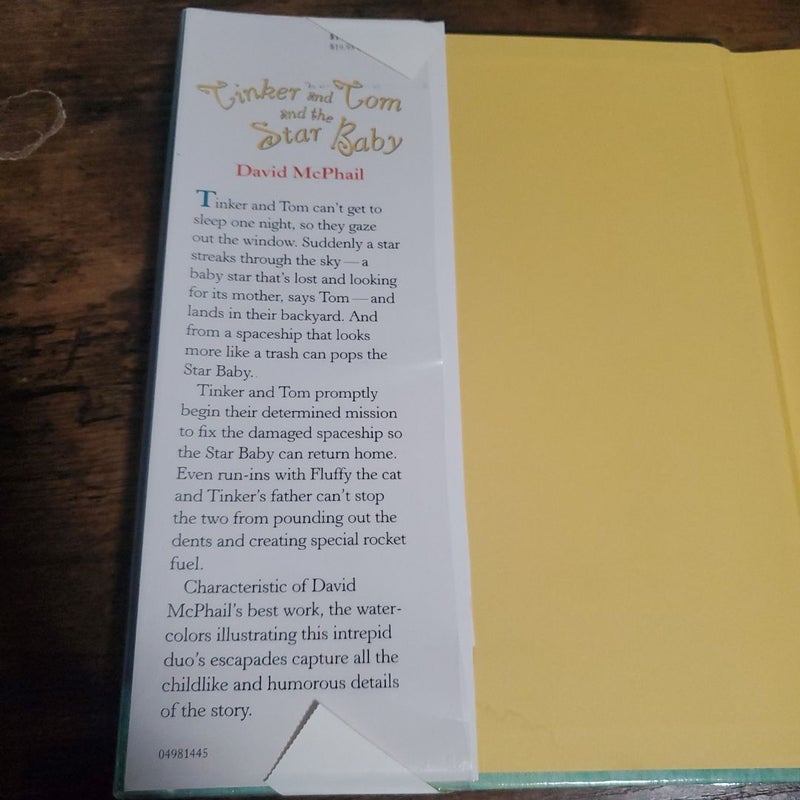 $19.95
Tinker and Tom
and the
Star Baby
David McPhail
Tinker and Tom can't get to
sleep one night, so they gaze
out the window. Suddenly a star
streaks through the sky — a
baby star that's lost and looking
for its mother, says Tom — and
lands in their backyard. And
from a spaceship that looks
more like a trash can pops the
Star Baby.
Tinker and Tom promptly
begin their determined mission
to fix the damaged spaceship so
the Star Baby can return home.
Even run-ins with Fluffy the cat
and Tinker's father can't stop
the two from pounding out the
dents and creating special rocket
fuel.
Characteristic of David
McPhail's best work, the water-
colors illustrating this intrepid
duo's escapades capture all the
childlike and humorous details
of the story.
04981445